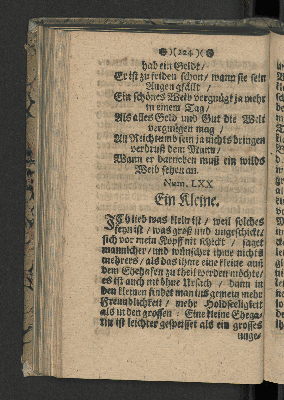 )(224)(
hab ein Geldt /
Er ist zu leiden schon / wann sie sein
Augen gfällt /
Ein schönes Weib vergnügt ja mehr
in einem Tag /
Als alles Geld und Gut die Welt
vergnügen mag /
An Reichtumb sein ja nichts bringen
verdruß dem Mann /
Wann er darneben muß ein wilds
Weib sehen an.
Num. LXX
Ein Kleine.
Ich lieb was klein ist / weil solches
seyn ist / was groß und ungeschickt /
sich vor mein Kopff nit schickt / saget
mannicher / und wünschet ihme nichts
mehrers / als das ihme eine kleine auß
dem Ehehafen zu theil werden möchte /
es ist auch nit ohne Ursach / dann in
den kleinen findet man ins gemein mehr
Freundlichkeit / mehr Holdseeligkeit
als in den grossen : Eine kleine Ehega-
tin ist leichter gespeisset als ein grosses
unge-